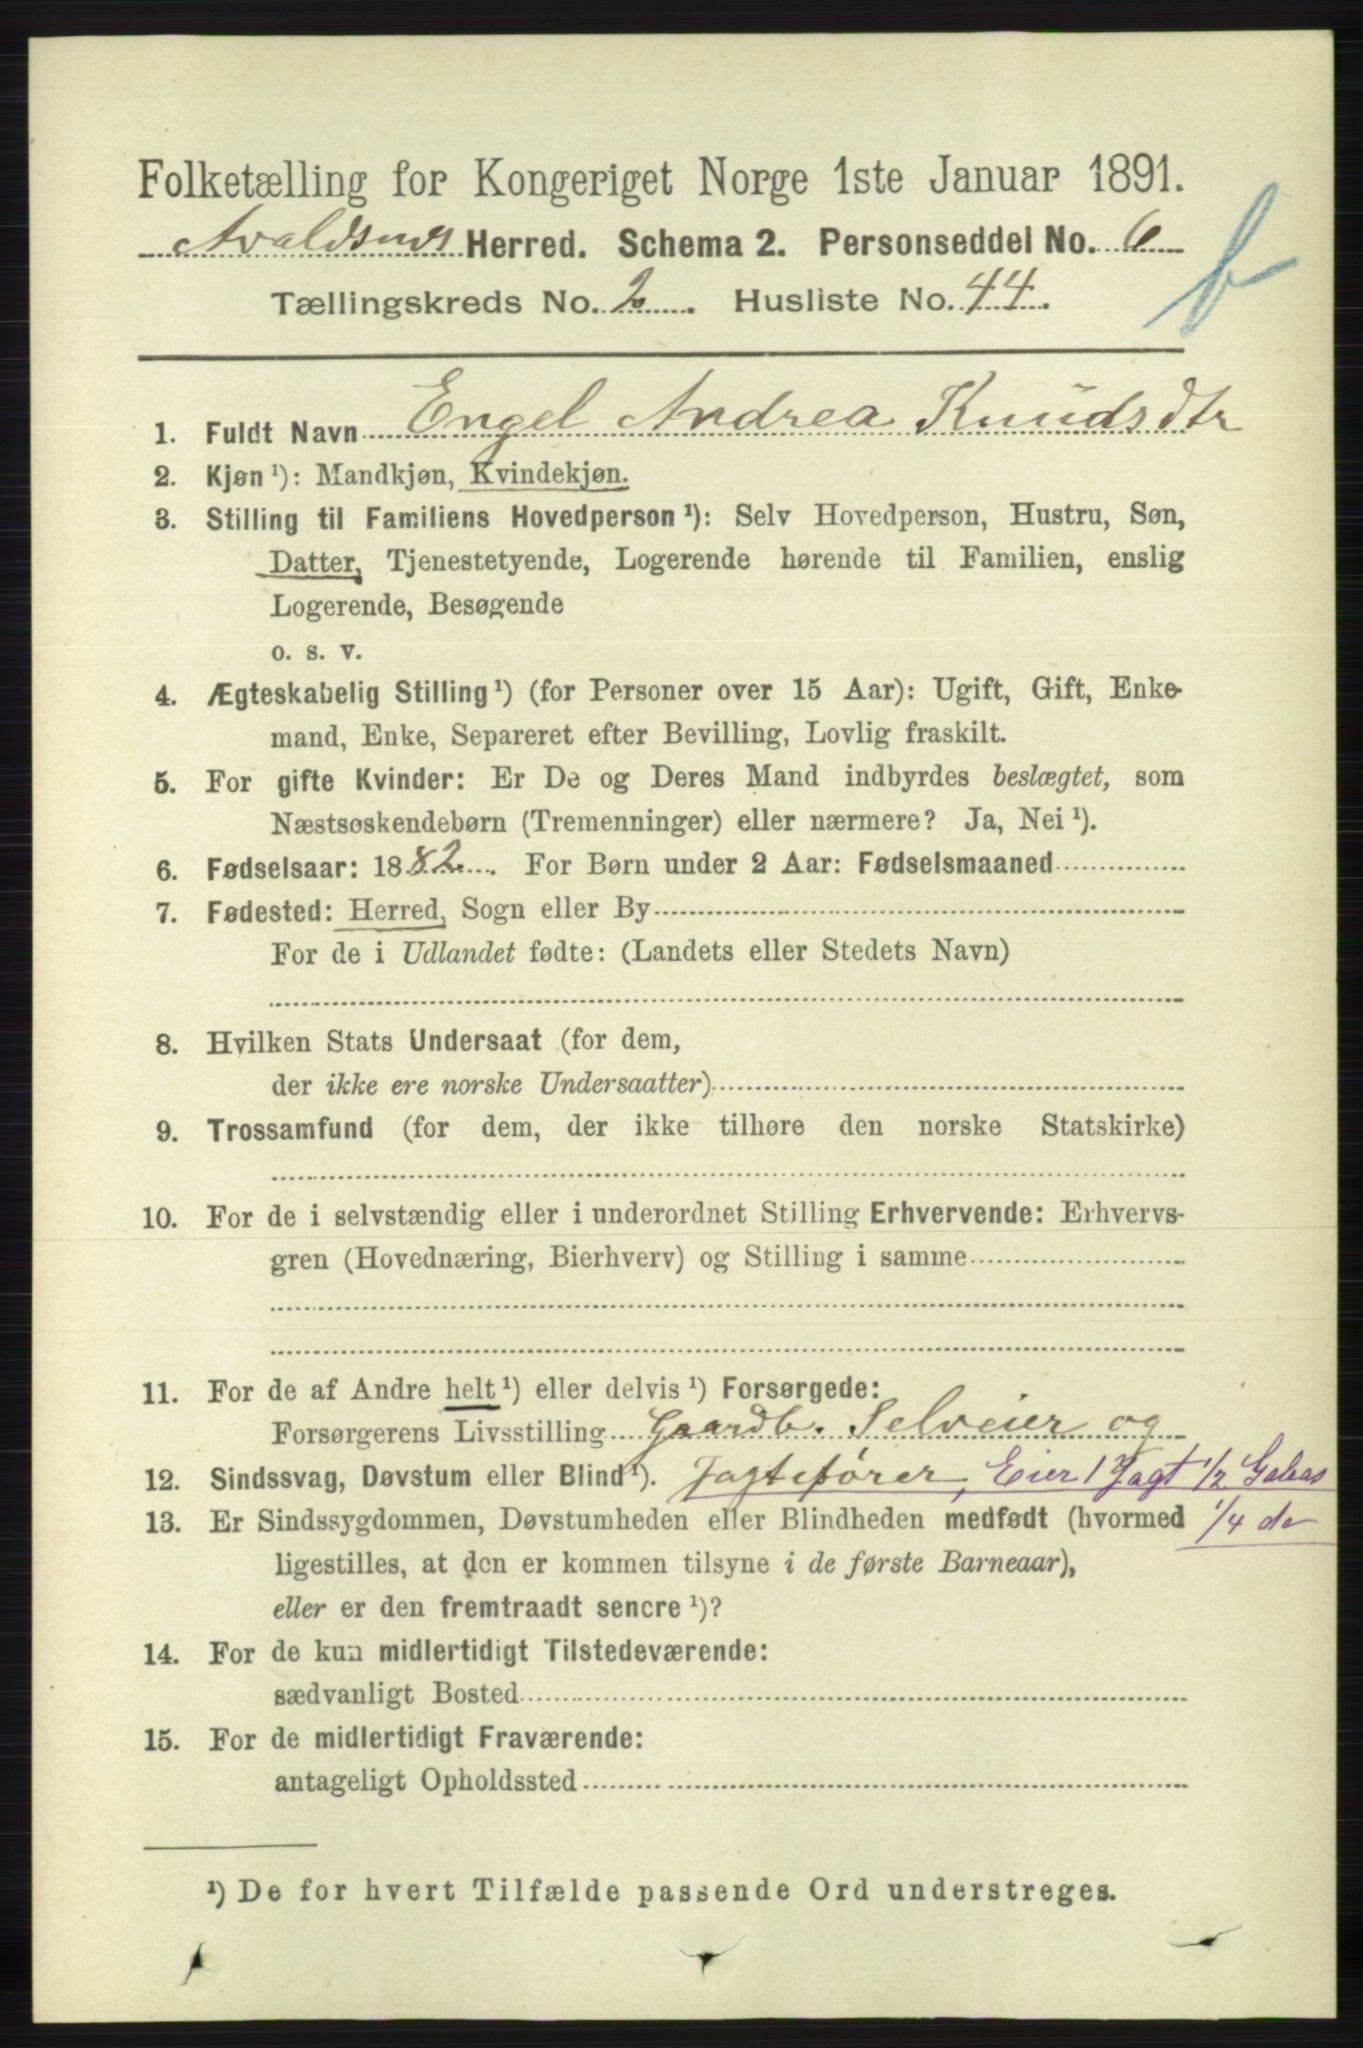 Folketælling for Kongeriget Norge 1ste Januar 1891.
Avaldsnes Herred. Schema 2. Personseddel No. 6
Tællingskreds No. 2. Husliste No. 44.
b
1. Fuldt Navn Engel Andrea Knudsdtr
2. Kjøn ¹): Mandkjøn, Kvindekjøn.
3. Stilling til Familiens Hovedperson ¹): Selv Hovedperson, Hustru, Søn,
Datter, Tjenestetyende, Logerende hørende til Familien, enslig
Logerende, Besøgende
o. s. v.
4. Ægteskabelig Stilling ¹) (for Personer over 15 Aar): Ugift, Gift, Enke-
mand, Enke, Separeret efter Bevilling, Lovlig fraskilt.
5. For gifte Kvinder: Er De og Deres Mand indbyrdes beslægtet, som
Næstsøskendebørn (Tremenninger) eller nærmere? Ja, Nei ¹).
6. Fødselsaar: 1882. For Børn under 2 Aar: Fødselsmaaned
7. Fødested: Herred, Sogn eller By
For de i Udlandet fødte: (Landets eller Stedets Navn)
8. Hvilken Stats Undersaat (for dem,
der ikke ere norske Undersaatter)
9. Trossamfund (for dem, der ikke tilhøre den norske Statskirke)
10. For de i selvstændig eller i underordnet Stilling Erhvervende: Erhvervs-
gren (Hovednæring, Bierhverv) og Stilling i samme
11. For de af Andre helt ¹) eller delvis ¹) Forsørgede:
Forsørgerens Livsstilling Gaardb. Selveier og
12. Sindssvag, Døvstum eller Blind ¹). Jagtefører, Eier 1 Jagt 1/2 Galeas
13. Er Sindssygdommen, Døvstumheden eller Blindheden medfødt (hvormed 1/4 do
ligestilles, at den er kommen tilsyne i de første Barneaar),
eller er den fremtraadt senere ¹)?
14. For de kun midlertidigt Tilstedeværende:
sædvanligt Bosted
15. For de midlertidigt Fraværende:
antageligt Opholdssted
¹) De for hvert Tilfælde passende Ord understreges.